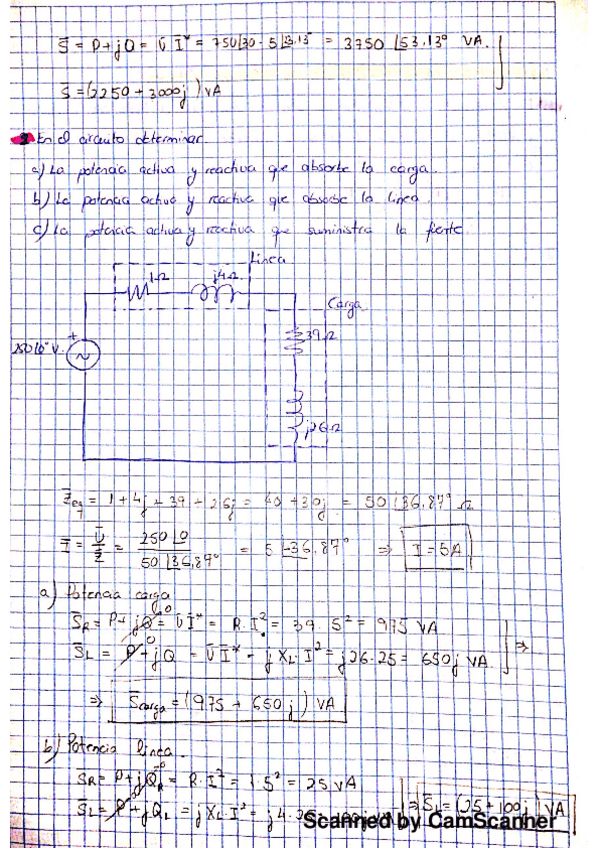 S̄ = P+jQ = Ū Ī* = 750∠30 · 5∠3.13° = 3750 ∠53.13° VA.
S̄ = (2250 + 3000j) VA
En el circuito determinar
a) La potencia activa y reactiva que absorbe la carga.
b) La potencia activa y reactiva que absorbe la línea
c) La potencia activa y reactiva que suministra la fuente.
Línea
1Ω j4Ω
Carga
39Ω
+
250∠0° V.
j26Ω
Z̄eq = 1 + 4j + 39 + 26j = 40 + 30j = 50 ∠36.87° Ω
Ī = Ū/Z̄ = 250∠0 / 50∠36,87° = 5 ∠-36.87° ⇒ I = 5A
a) Potencia carga
S̄R = P + jQ⁰ = Ū Ī* = R·I² = 39 · 5² = 975 VA
S̄L = P⁰ + jQ = Ū Ī* = j XL·I² = j26·25 = 650j VA ⇒
⇒ S̄carga = (975 + 650j) VA
b) Potencia línea.
S̄R = P + jQR⁰ = R·I² = 1·5² = 25 VA
S̄L = P⁰ + jQL = j XL·I² = j4 · ⇒ S̄L = (25 + 100j) VA
Scanned by CamScanner